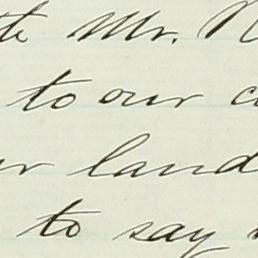 Mr.
to our
land
to say